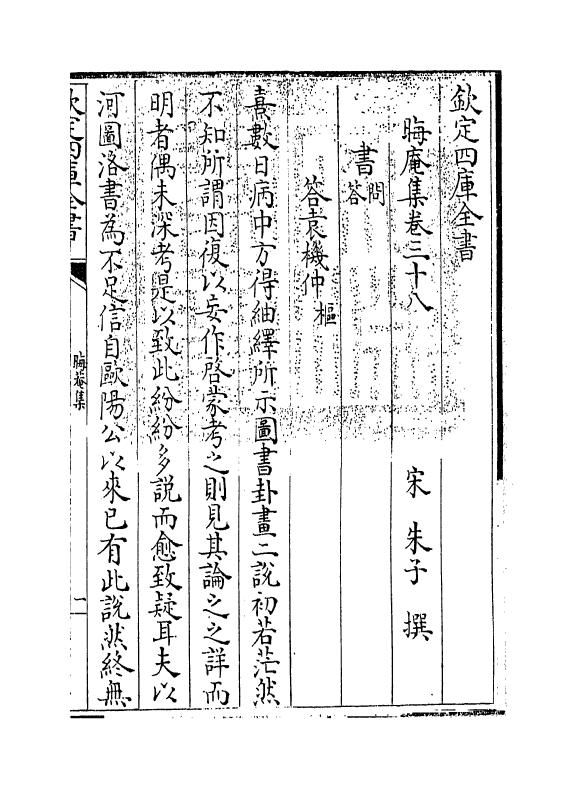 欽定四庫全書
晦庵集卷三十八
宋 朱子 撰
書問答
答袁機仲樞
熹數日病中方得紬繹所示圖書卦畫二說初若茫然
不知所謂因復以妄作啓蒙考之則見其論之之詳而
明者偶未深考是以致此紛紛多說而愈致疑耳夫以
河圖洛書為不足信自歐陽公以來已有此說然終無
欽定四庫全書
晦菴集